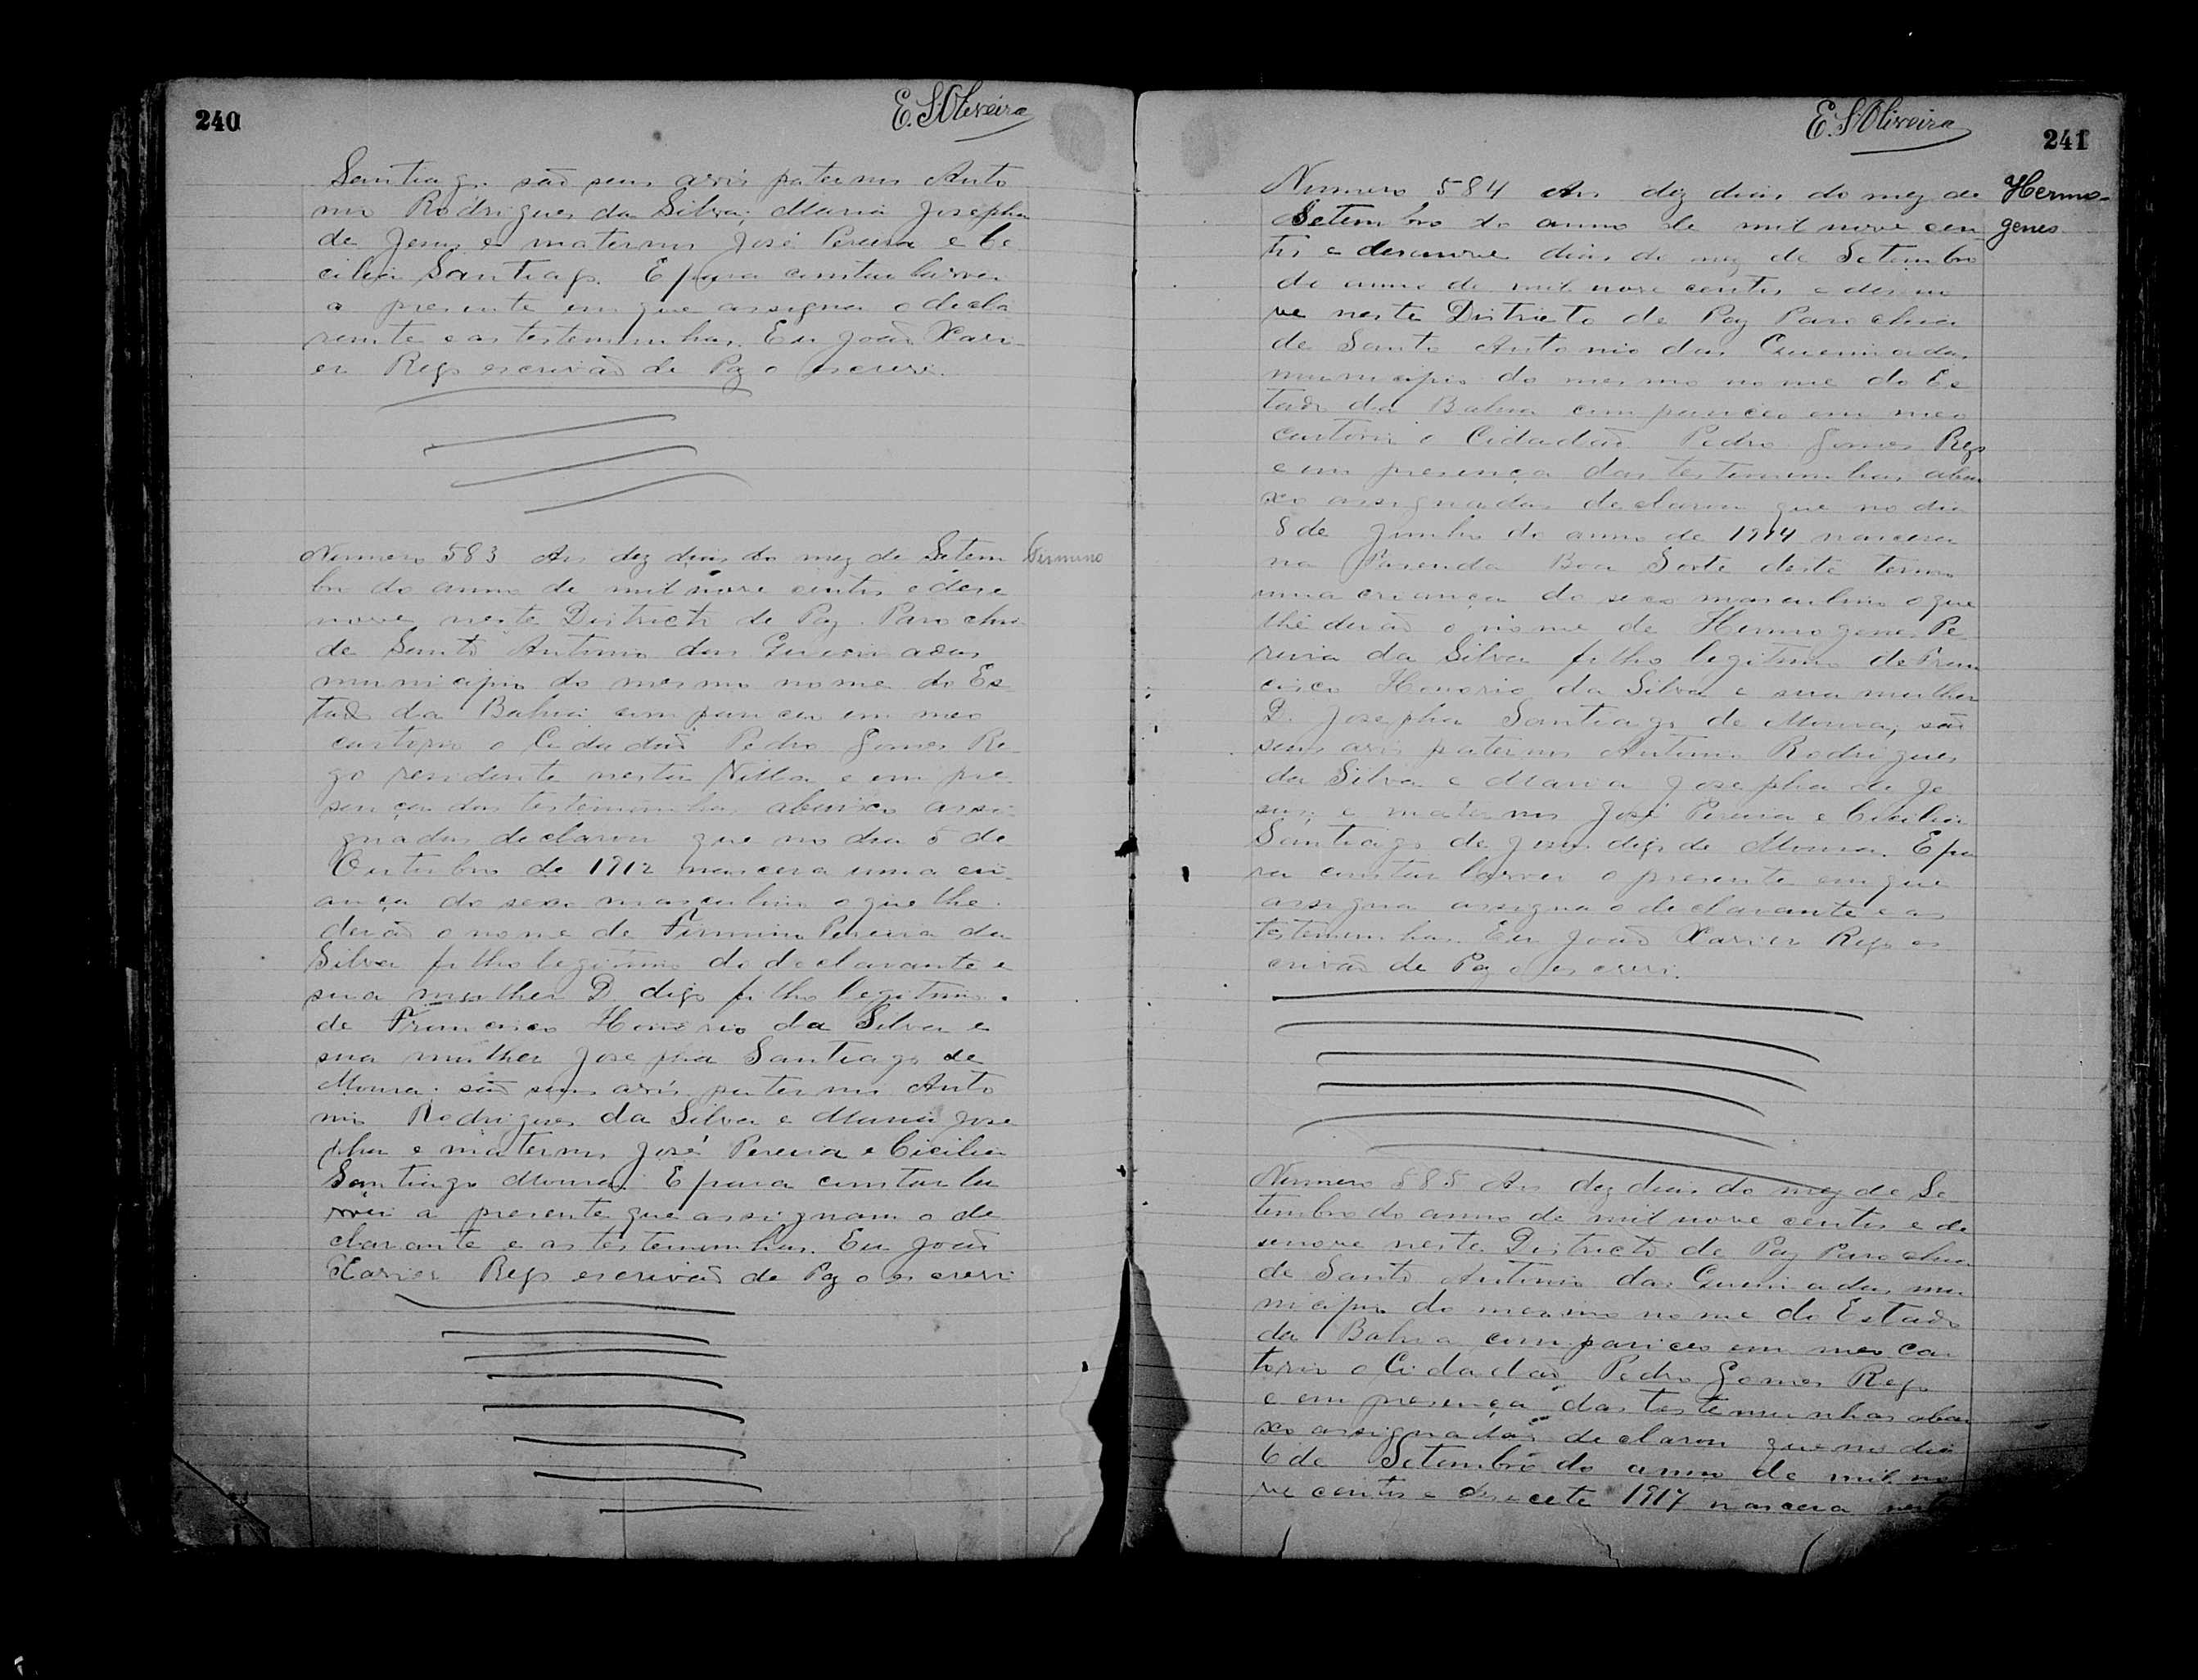 240
E. S. Oliveira
Santiago. são seus avós paternos Anto
nio Rodrigues da Silva; Maria Josepha
de Jesus e maternos José Pereira e Ce
cilia Santiago. E para constar lavrei
a presente em que assigna o decla
rante e as testemunhas. Eu João Xavi
er Rego escrivão de Paz o escrevi.
Numero 583 Aos dez dias do mez de Setem
Firmino
bro do anno de mil nove centos e dese
nove neste Districto de Paz. Parochia
de Santo Antonio das Queimadas
municipio do mesmo nome do Es
tado da Bahia compareceu em meo
cartorio o Cidadão Pedro Gomes Re
go residente nesta Villa e em pre
sença das testemunhas abaixo assi
gnadas declarou que no dia 5 de
Outubro de 1912 nascera uma cri
ança do sexo masculino o que lhe
derão o nome de Firmino Pereira da
Silva filho legitimo do declarante e
sua mulher D digo filho legitimo
de Francisco Honorio da Silva e
sua mulher Josepha Santiago de
Moura: são seus avós paternos Anto
nio Rodrigues da Silva e Maria Jose
pha e maternos José Pereira e Cicilia
Santiago Moura. E para constar la
vrei a presente que assignam o de
clarante e as testemunhas. Eu João
Xavier Rego escrivão de Paz o escrevi
241
E. S. Oliveira
Numero 584 Aos dez dias do mez de
Hermo-
genes
Setembro do anno de mil nove cen
tos e desenove dias do mez de Setembro
do anno de mil nove centos e deseno
ve neste Districto de Paz Parochia
de Santo Antonio das Queimadas
municipio do mesmo nome do Es
tado da Bahia compareceu em meo
cartorio o Cidadão Pedro Gomes Rego
e em presença das testemunhas abai
xo assignadas declarou que no dia
8 de Junho do anno de 1914 nascera
na Fasenda Boa Sorte deste termo
uma criança do sexo masculino o que
lhe derão o nome de Hermogene Pe
reira da Silva filho legitimo de Fran
cisco Honorio da Silva e sua mulher
D. Josepha Santiago de Moura; são
seus avós paternos Antonio Rodrigues
da Silva e Maria Josepha de Je
sus; e maternos José Pereira e Cicilia
Santiago de Jesus digo de Moura. E pa
ra constar lavrei o presente em que
assigna assigna o declarante e as
testemunhas. Eu João Xavier Rego es
crivão de Paz o escrevi.
Numero 585 Aos dez dias do mez de Se
tembro do anno de mil nove centos e de
senove neste Districto de Paz Parochia
de Santo Antonio das Queimadas mu
nicipio do mesmo nome do Estado
da Bahia compareceo em meo car
torio o Cidadão Pedro Gomes Rego
e em presença das testemunhas abai
xo assignadas declarou que no dia
6 de Setembro do anno de mil no
ve centos e desecete 1917 nascera